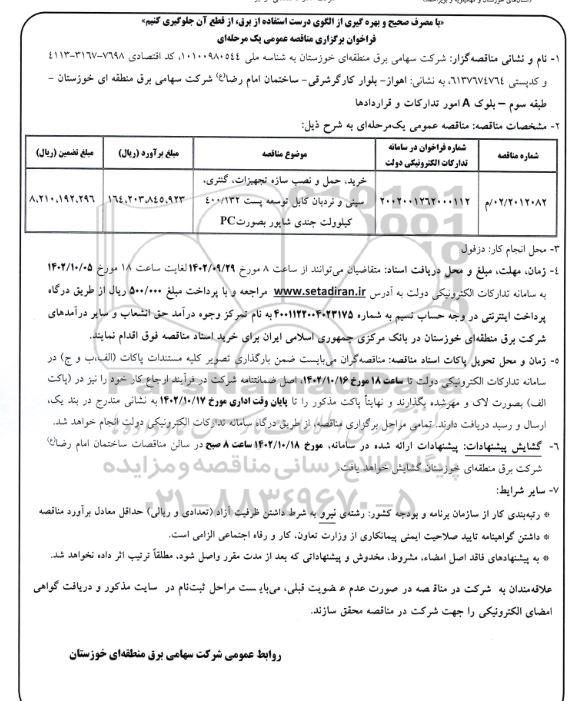 «با مصرف صحیح و بهره گیری از الگوی درست استفاده از برق، از قطع آن جلوگیری کنیم»
فراخوان برگزاری مناقصه عمومی یک مرحله‌ای
۱- نام و نشانی مناقصه‌گزار: شرکت سهامی برق منطقه‌ای خوزستان به شناسه ملی ۱۰۱۰۰۹۸۰۵۴۴، کد اقتصادی ۷۶۹۸-۳۱۶۷-۴۱۱۳
و کدپستی ۶۱۳۷۶۷۴۷۶۴، به نشانی: اهواز- بلوار کارگرشرقی- ساختمان امام رضا(ع) شرکت سهامی برق منطقه ای خوزستان -
طبقه سوم – بلوک A امور تدارکات و قراردادها
۲- مشخصات مناقصه: مناقصه عمومی یک‌مرحله‌ای به شرح ذیل:
شماره مناقصه | شماره فراخوان در سامانه تدارکات الکترونیکی دولت | موضوع مناقصه | مبلغ برآورد (ریال) | مبلغ تضمین (ریال)
۰۲/۲۰۱۲۰۸۲/م | ۲۰۰۲۰۰۱۲۶۲۰۰۰۱۱۲ | خرید، حمل و نصب سازه تجهیزات، گنتری، سینی و نردبان کابل توسعه پست ۴۰۰/۱۳۲ کیلوولت جندی شاپور بصورت PC | ۱۶۴,۲۰۳,۸۴۵,۹۲۳ | ۸,۲۱۰,۱۹۲,۲۹۶
۳- محل انجام کار: دزفول
۴- زمان، مهلت، مبلغ و محل دریافت اسناد: متقاضیان می‌توانند از ساعت ۸ مورخ ۱۴۰۲/۰۹/۲۹ لغایت ساعت ۱۸ مورخ ۱۴۰۲/۱۰/۰۵
به سامانه تدارکات الکترونیکی دولت به آدرس www.setadiran.ir مراجعه و با پرداخت مبلغ ۵۰۰/۰۰۰ ریال از طریق درگاه
پرداخت اینترنتی در وجه حساب نسیم به شماره ۴۰۰۱۱۲۲۰۰۴۰۲۳۱۷۵ به نام تمرکز وجوه درآمد حق انشعاب و سایر درآمدهای
شرکت برق منطقه‌ای خوزستان در بانک مرکزی جمهوری اسلامی ایران برای خرید اسناد مناقصه فوق اقدام نمایند.
۵- زمان و محل تحویل پاکات اسناد مناقصه: مناقصه‌گران می‌بایست ضمن بارگذاری تصویر کلیه مستندات پاکات (الف،ب و ج) در
سامانه تدارکات الکترونیکی دولت تا ساعت ۱۸ مورخ ۱۴۰۲/۱۰/۱۶، اصل ضمانتنامه شرکت در فرآیند ارجاع کار خود را نیز در (پاکت
الف) بصورت لاک و مهرشده بگذارند و نهایتاً پاکت مذکور را تا پایان وقت اداری مورخ ۱۴۰۲/۱۰/۱۷ به نشانی مندرج در بند یک،
ارسال و رسید دریافت دارند. تمامی مراحل برگزاری مناقصه، از طریق درگاه سامانه تدارکات الکترونیکی دولت انجام خواهد شد.
۶- گشایش پیشنهادات: پیشنهادات ارائه شده در سامانه، مورخ ۱۴۰۲/۱۰/۱۸ ساعت ۸ صبح در سالن مناقصات ساختمان امام رضا(ع)
شرکت برق منطقه‌ای خوزستان گشایش خواهد یافت.
۷- سایر شرایط:
* رتبه‌بندی کار از سازمان برنامه و بودجه کشور: رشته‌ی نیرو به شرط داشتن ظرفیت آزاد (تعدادی و ریالی) حداقل معادل برآورد مناقصه
* داشتن گواهینامه تایید صلاحیت ایمنی پیمانکاری از وزارت تعاون، کار و رفاه اجتماعی الزامی است.
* به پیشنهادهای فاقد اصل امضاء، مشروط، مخدوش و پیشنهاداتی که بعد از مدت مقرر واصل شود، مطلقاً ترتیب اثر داده نخواهد شد.
علاقه‌مندان به شرکت در مناقصه در صورت عدم عضویت قبلی، می‌بایست مراحل ثبت‌نام در سایت مذکور و دریافت گواهی
امضای الکترونیکی را جهت شرکت در مناقصه محقق سازند.
روابط عمومی شرکت سهامی برق منطقه‌ای خوزستان
پایگاه اطلاع رسانی مناقصه و مزایده
۰۲۱-۸۸۳۴۹۶۷۰-۵